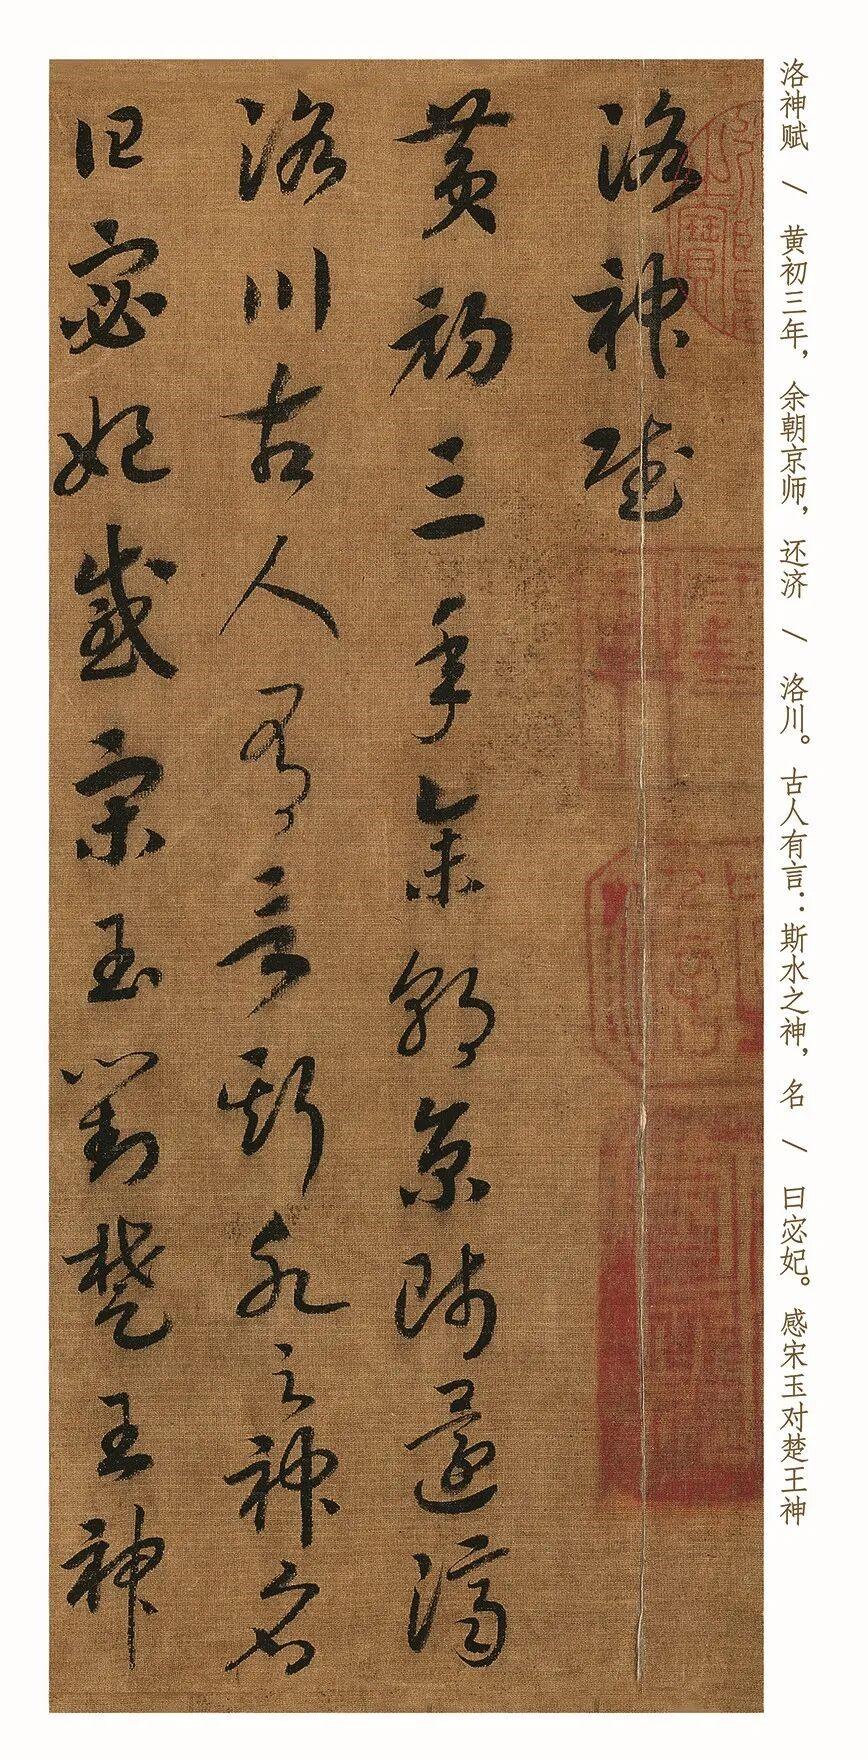 洛神赋 \ 黄初三年，余朝京师，还济 \ 洛川。古人有言：斯水之神，名 \ 曰宓妃。感宋玉对楚王神
洛神賦
黄初三年余朝京師還濟
洛川古人有言斯水之神名
曰宓妃感宋玉對楚王神